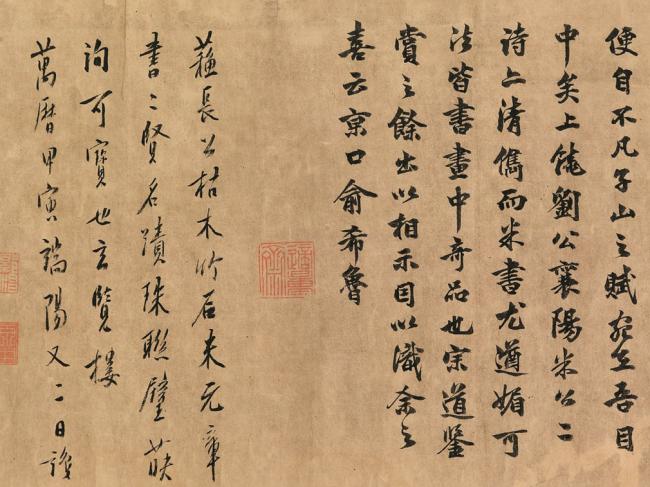 便自不凡子山之賦宛在吾目
中矣上饒劉公襄陽米公二
詩亦清儁而米書尤遒媚可
法皆書畫中奇品也宗道鑒
賞之餘出以相示因以識余之
喜云京口俞希魯
蘇長公枯木竹石米元章
書二賢名蹟珠聯璧映
詢可寶也玄覽樓
萬曆甲寅端陽又二日